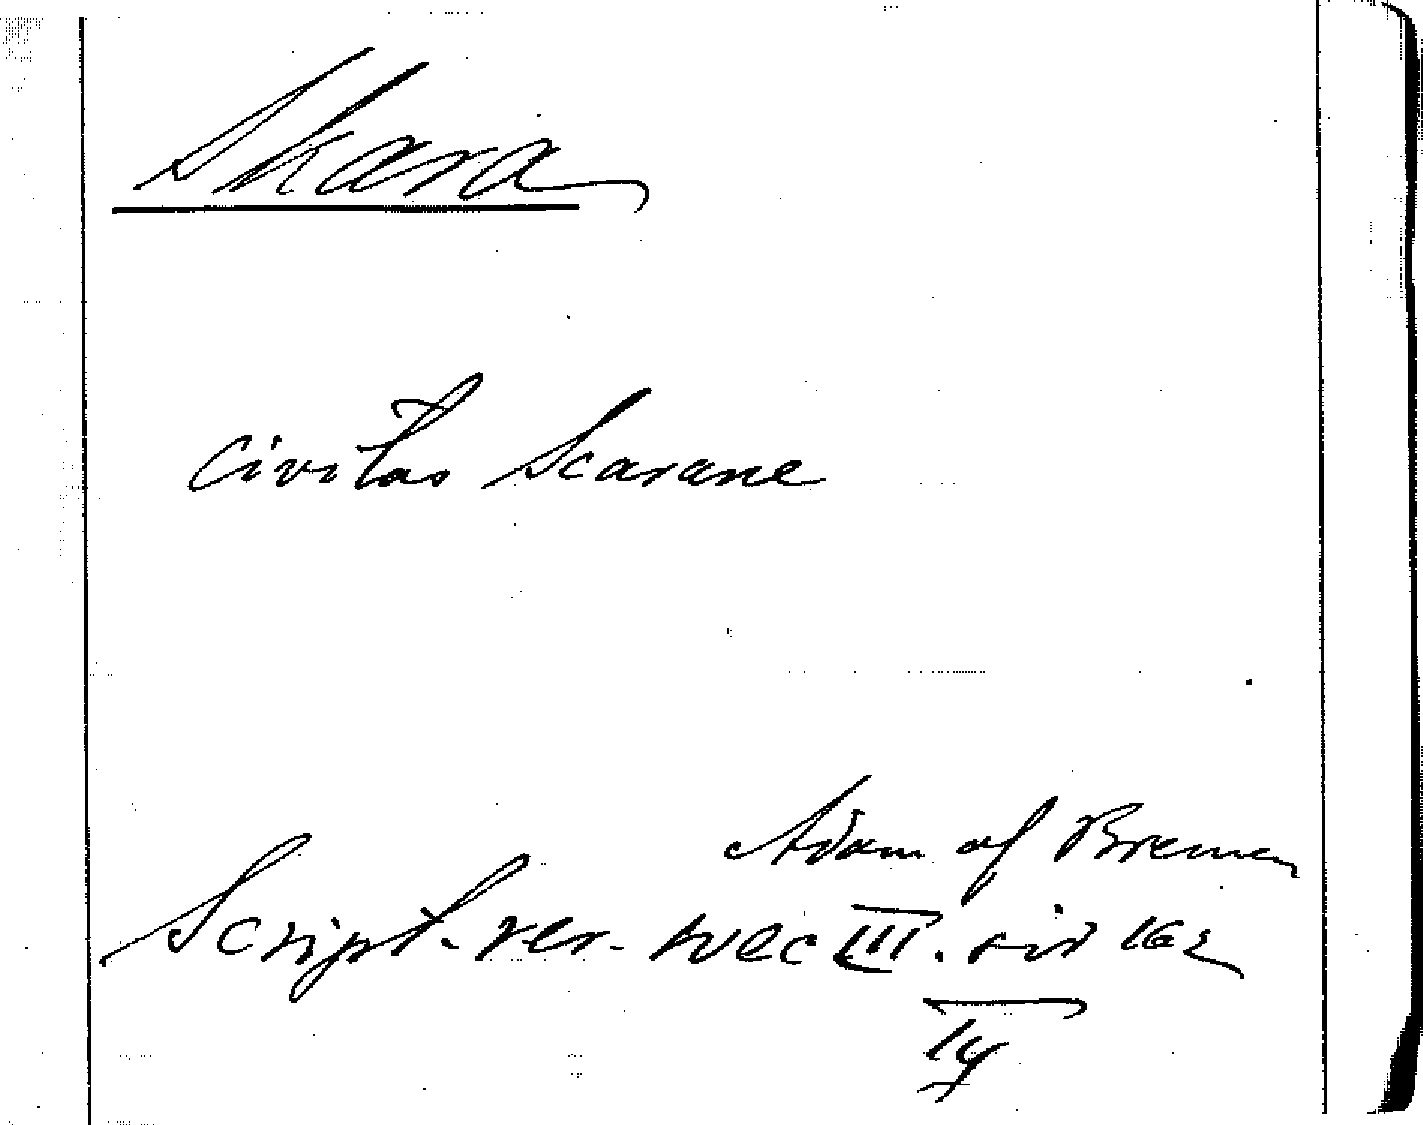 Skara
Civitas Scarane
Adam af Bremen
Script. rer. svec III. sid 162